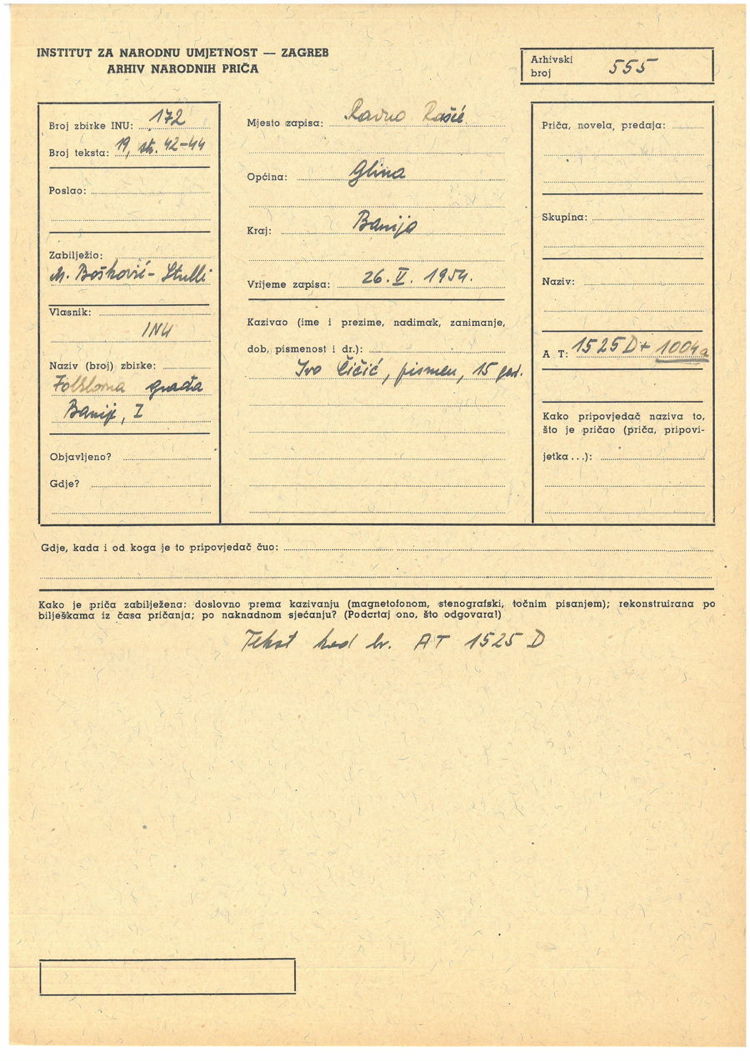 INSTITUT ZA NARODNU UMJETNOST — ZAGREB
ARHIV NARODNIH PRIČA
Arhivski broj 555
Broj zbirke INU: 172
Broj teksta: 19, str. 42-44
Poslao:
Zabilježio:
M. Bošković-Stulli
Vlasnik:
INU
Naziv (broj) zbirke:
Folklorna građa
Banije, I
Objavljeno?
Gdje?
Mjesto zapisa: Ravno Rašće
Općina: Glina
Kraj: Banija
Vrijeme zapisa: 26. V. 1954.
Kazivao (ime i prezime, nadimak, zanimanje,
dob, pismenost i dr.):
Ivo Čičić, pismen, 15 god.
Priča, novela, predaja:
Skupina:
Naziv:
A T: 1525 D + 1004a
Kako pripovjedač naziva to,
što je pričao (priča, pripovi-
jetka...):
Gdje, kada i od koga je to pripovjedač čuo:
Kako je priča zabilježena: doslovno prema kazivanju (magnetofonom, stenografski, točnim pisanjem); rekonstruirana po
bilješkama iz časa pričanja; po naknadnom sjećanju? (Podcrtaj ono, što odgovara!)
Tekst kod br. AT 1525 D